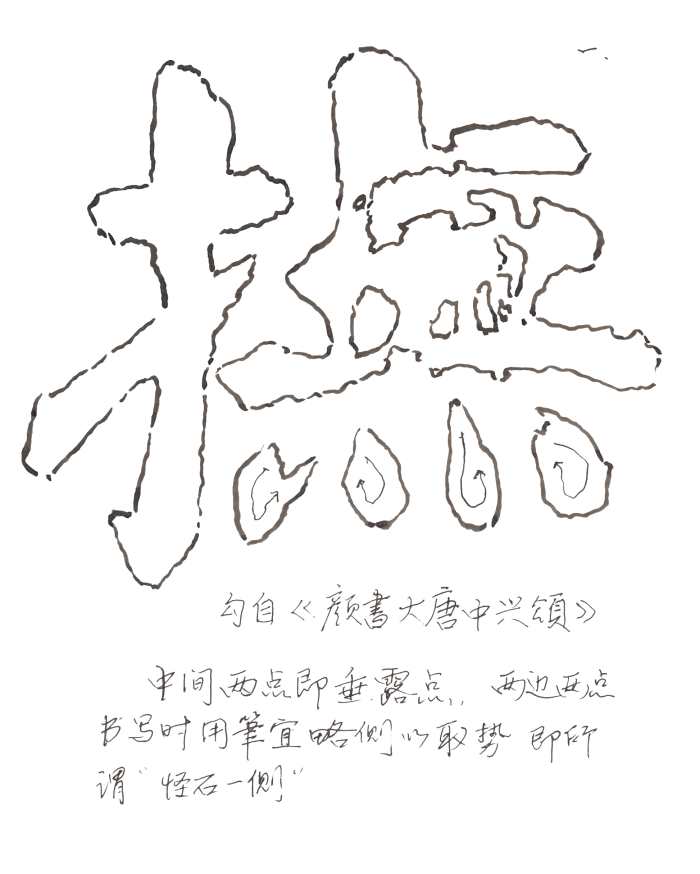 撫
勾自《顔書大唐中兴頌》
中间两点即垂露点,,两边两点
书写时用筆宜略侧以取势 即所
谓“怪石一侧”